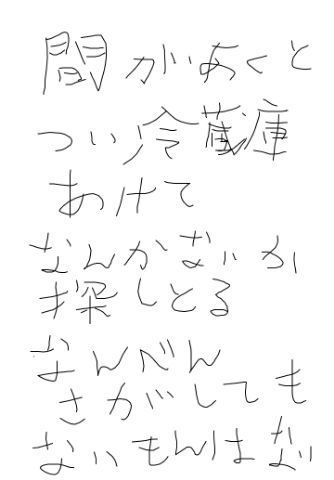 間があくと
つい冷蔵庫
あけて
なんかないか
探しとる
なんべん
さがしても
ないもんはない